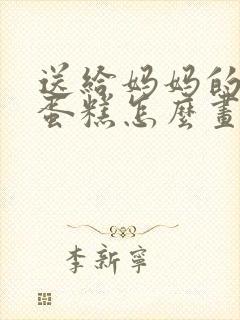 送給妈妈的
蛋糕怎麼畫
李新寧